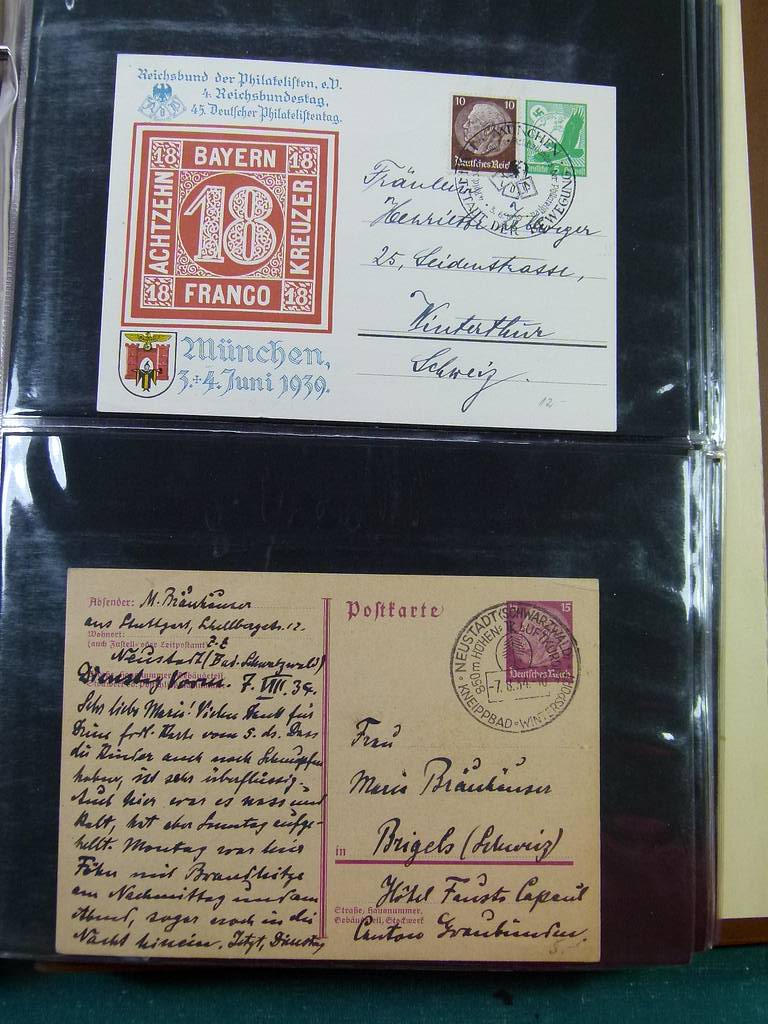 Reichsbund der Philatelisten, e.V.
4. Reichsbundestag,
45. Deutscher Philatelistentag.
18 BAYERN 18
ACHTZEHN
18
KREUZER
18 FRANCO 18
München,
3.+4. Juni 1939.
10 10
Deutsches Reich
MÜNCHEN
BEWEGUNG
Fräulein
Henriette
25, Seidenstrasse,
Winterthur
Schweiz.
12.-
Absender: M. Bräuhäuser
aus Stuttgart,
Wohnort:
(auch Zustell- oder Leitpostamt)
Neustadt (Bad. Schwarzwald)
Dienstag Vorm. 7. VIII. 34.
Sehr liebe Marie! Vielen Dank für
Deine frdl. Karte vom 5. ds. Dass
die Kinder auch noch Schnupfen
haben, ist sehr überflüssig.
Auch hier war es nass und
kalt, hat aber Sonntag aufge-
hellt. Montag war hier
Föhn mit Brandhitze
am Nachmittag und am
Abend, sogar noch in die
Nacht hinein. Jetzt, Dienstag
Postkarte
15
Deutsches Reich
NEUSTADT (SCHWARZWALD)
850m HÖHEN- LUFTKURORT
-7. 8. 34.
KNEIPPBAD WINTERSPORT
Frau
Marie Bräuhäuser
in Brigels (Schweiz)
Hôtel Fausta Capaul
Straße, Hausnummer,
Gebäudeteil, Stockwerk
Canton Graubünden